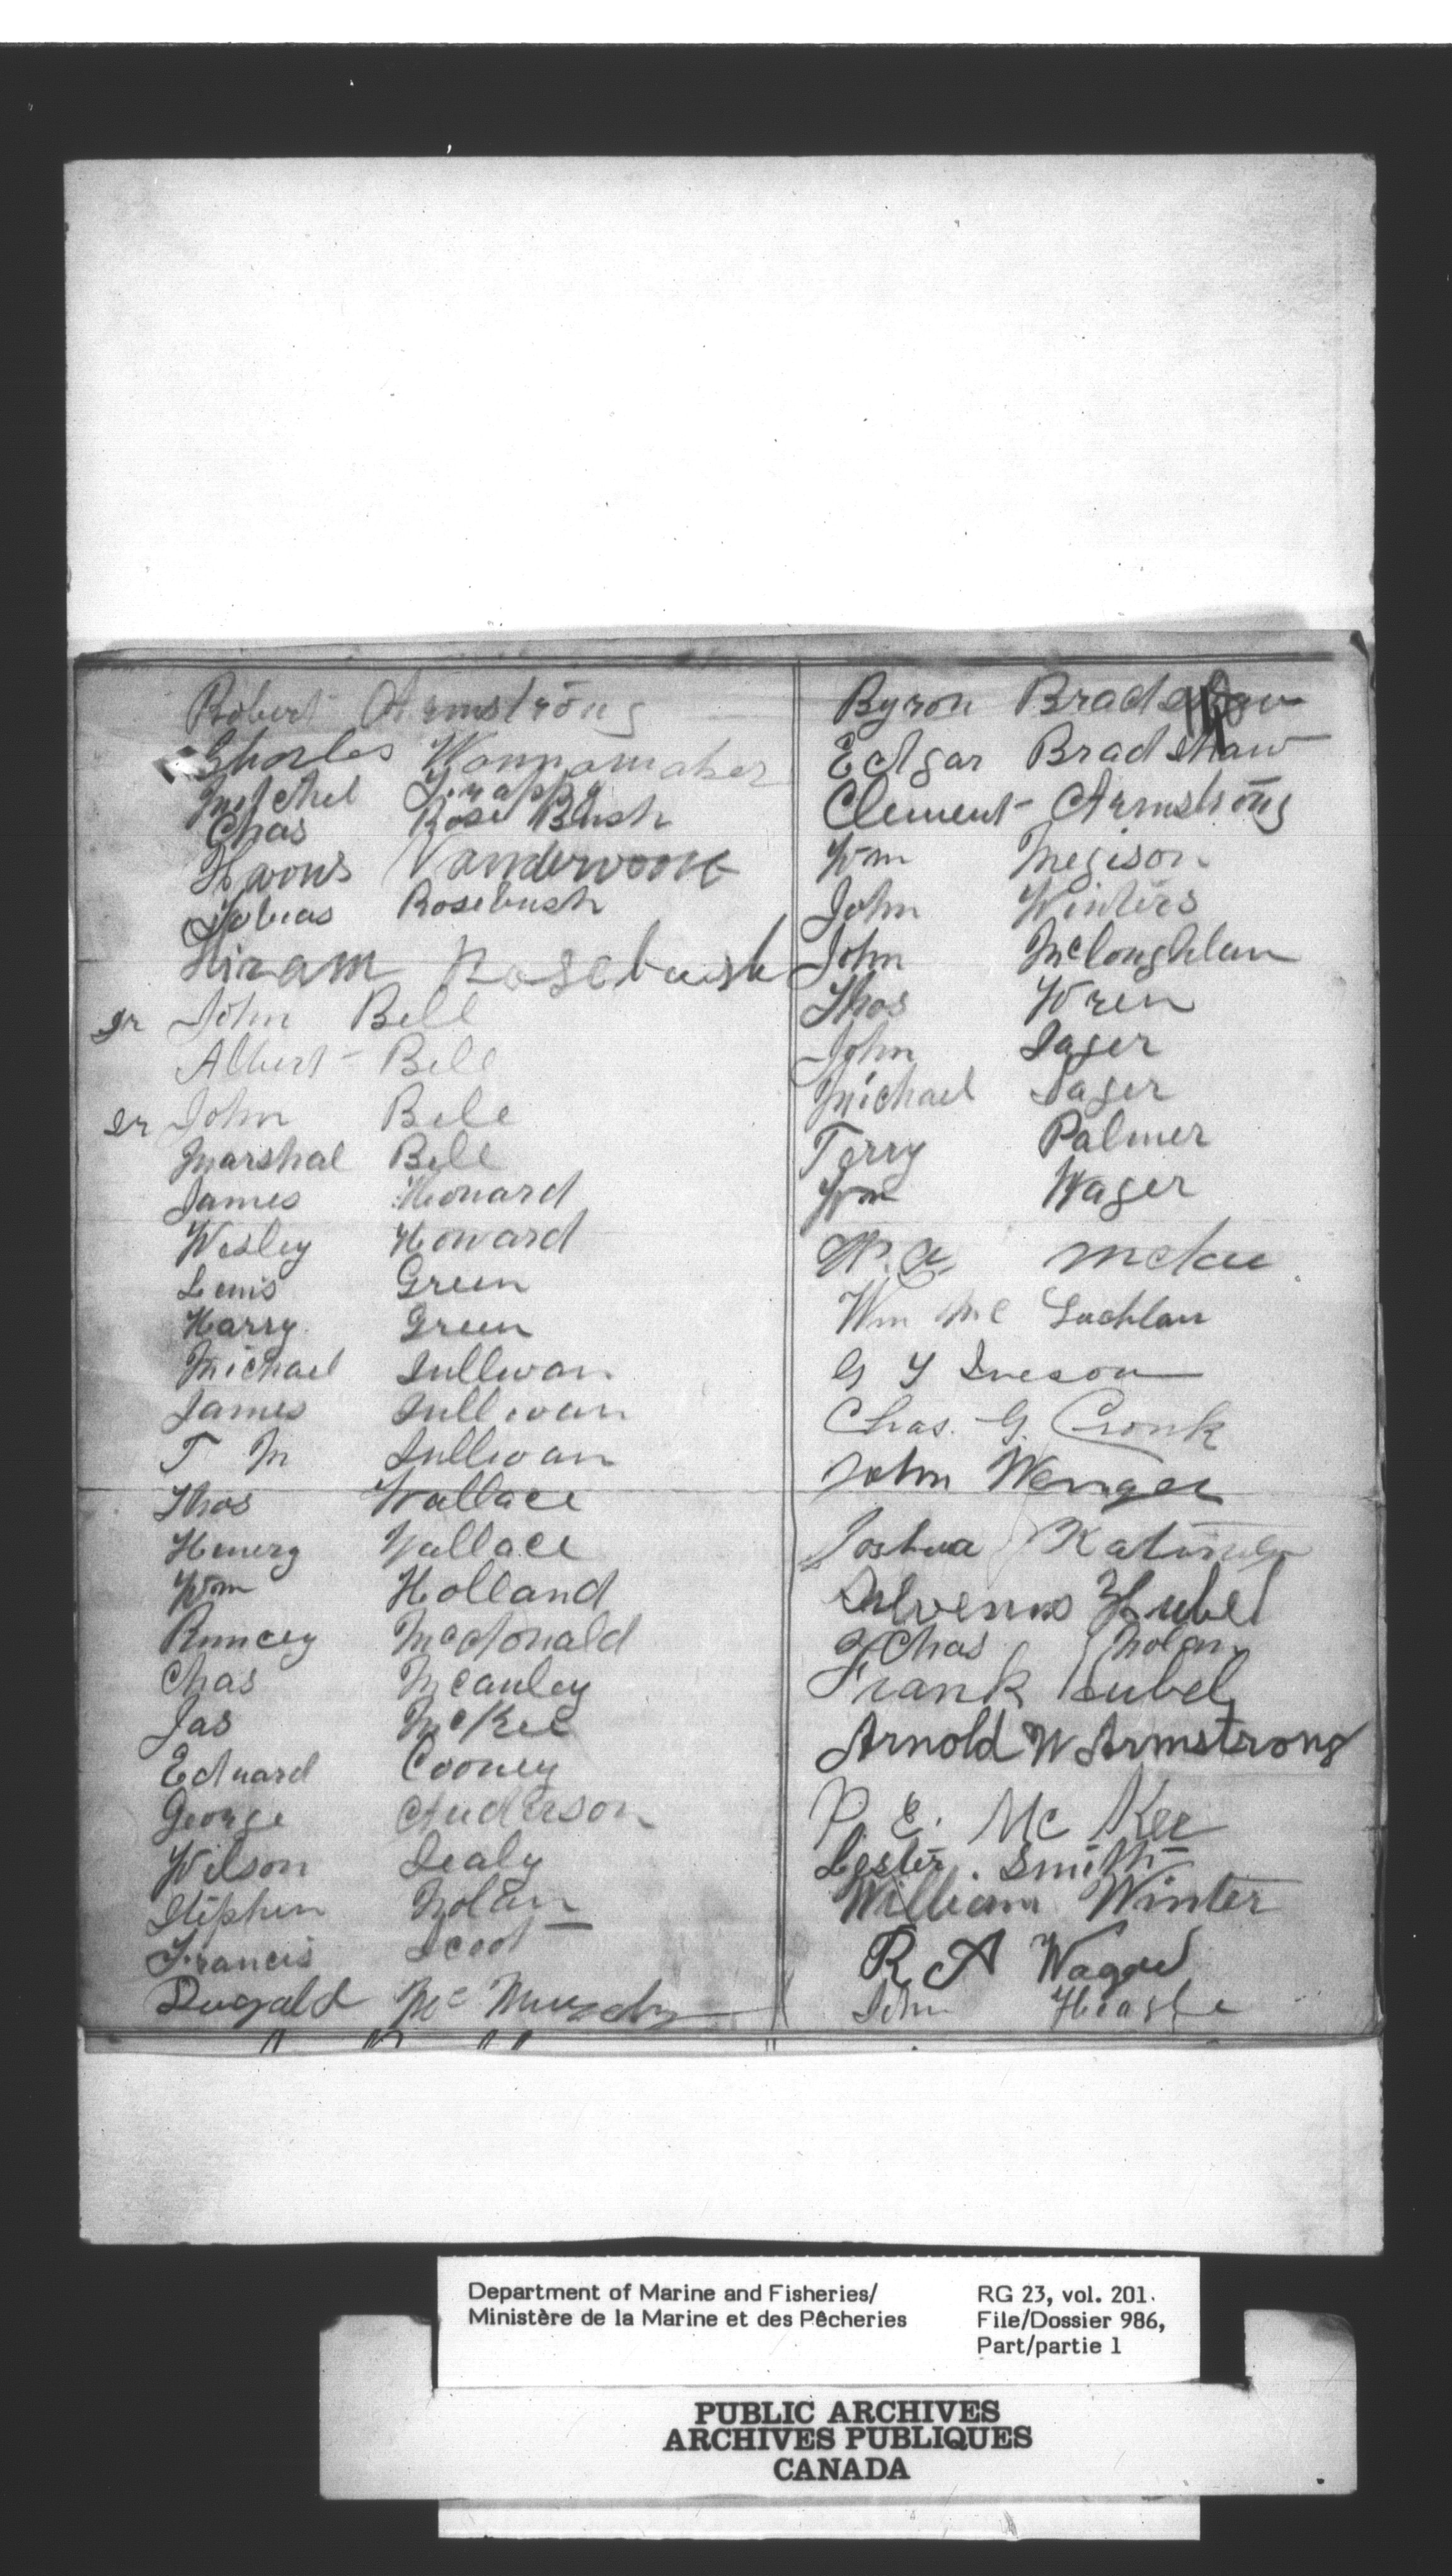 Robert Armstrong
Charles Wannamaker
Mitchel
Chas Rose Bush
Vandervoort
Tobias Rosebush
Hiram Rosebush
Jr John Bell
Albert Bell
Sr John Bell
Marshal Bell
James Howard
Wesley Howard
Lewis Green
Harry Green
Michael Sullivan
James Sullivan
T M Sullivan
Thos Wallace
Henery Wallace
Wm Holland
McDonald
Chas McCauley
Jas McKee
Edward Cooney
George Anderson
Wilson Sealy
Stephen Nolan
Francis Scoot
Dugald Mc
Byron Bradshaw
Edgar Bradshaw
Clement Armstrong
Wm Megison
John Winters
John McLoughlan
Thos Wren
John Sager
Michael Sager
Terry Palmer
Wm Wager
Wm Mc Lachlan
G Y Iveson
Chas. G. Cronk
John Wanger
Joshua
Hubel
Chas Nolan
Frank Hubel
Arnold W Armstrong
P. E. Mc Kee
Lester. Smith
William Winter
R A Wager
John
Department of Marine and Fisheries/
Ministère de la Marine et des Pêcheries
RG 23, vol. 201.
File/Dossier 986,
Part/partie 1
PUBLIC ARCHIVES
ARCHIVES PUBLIQUES
CANADA